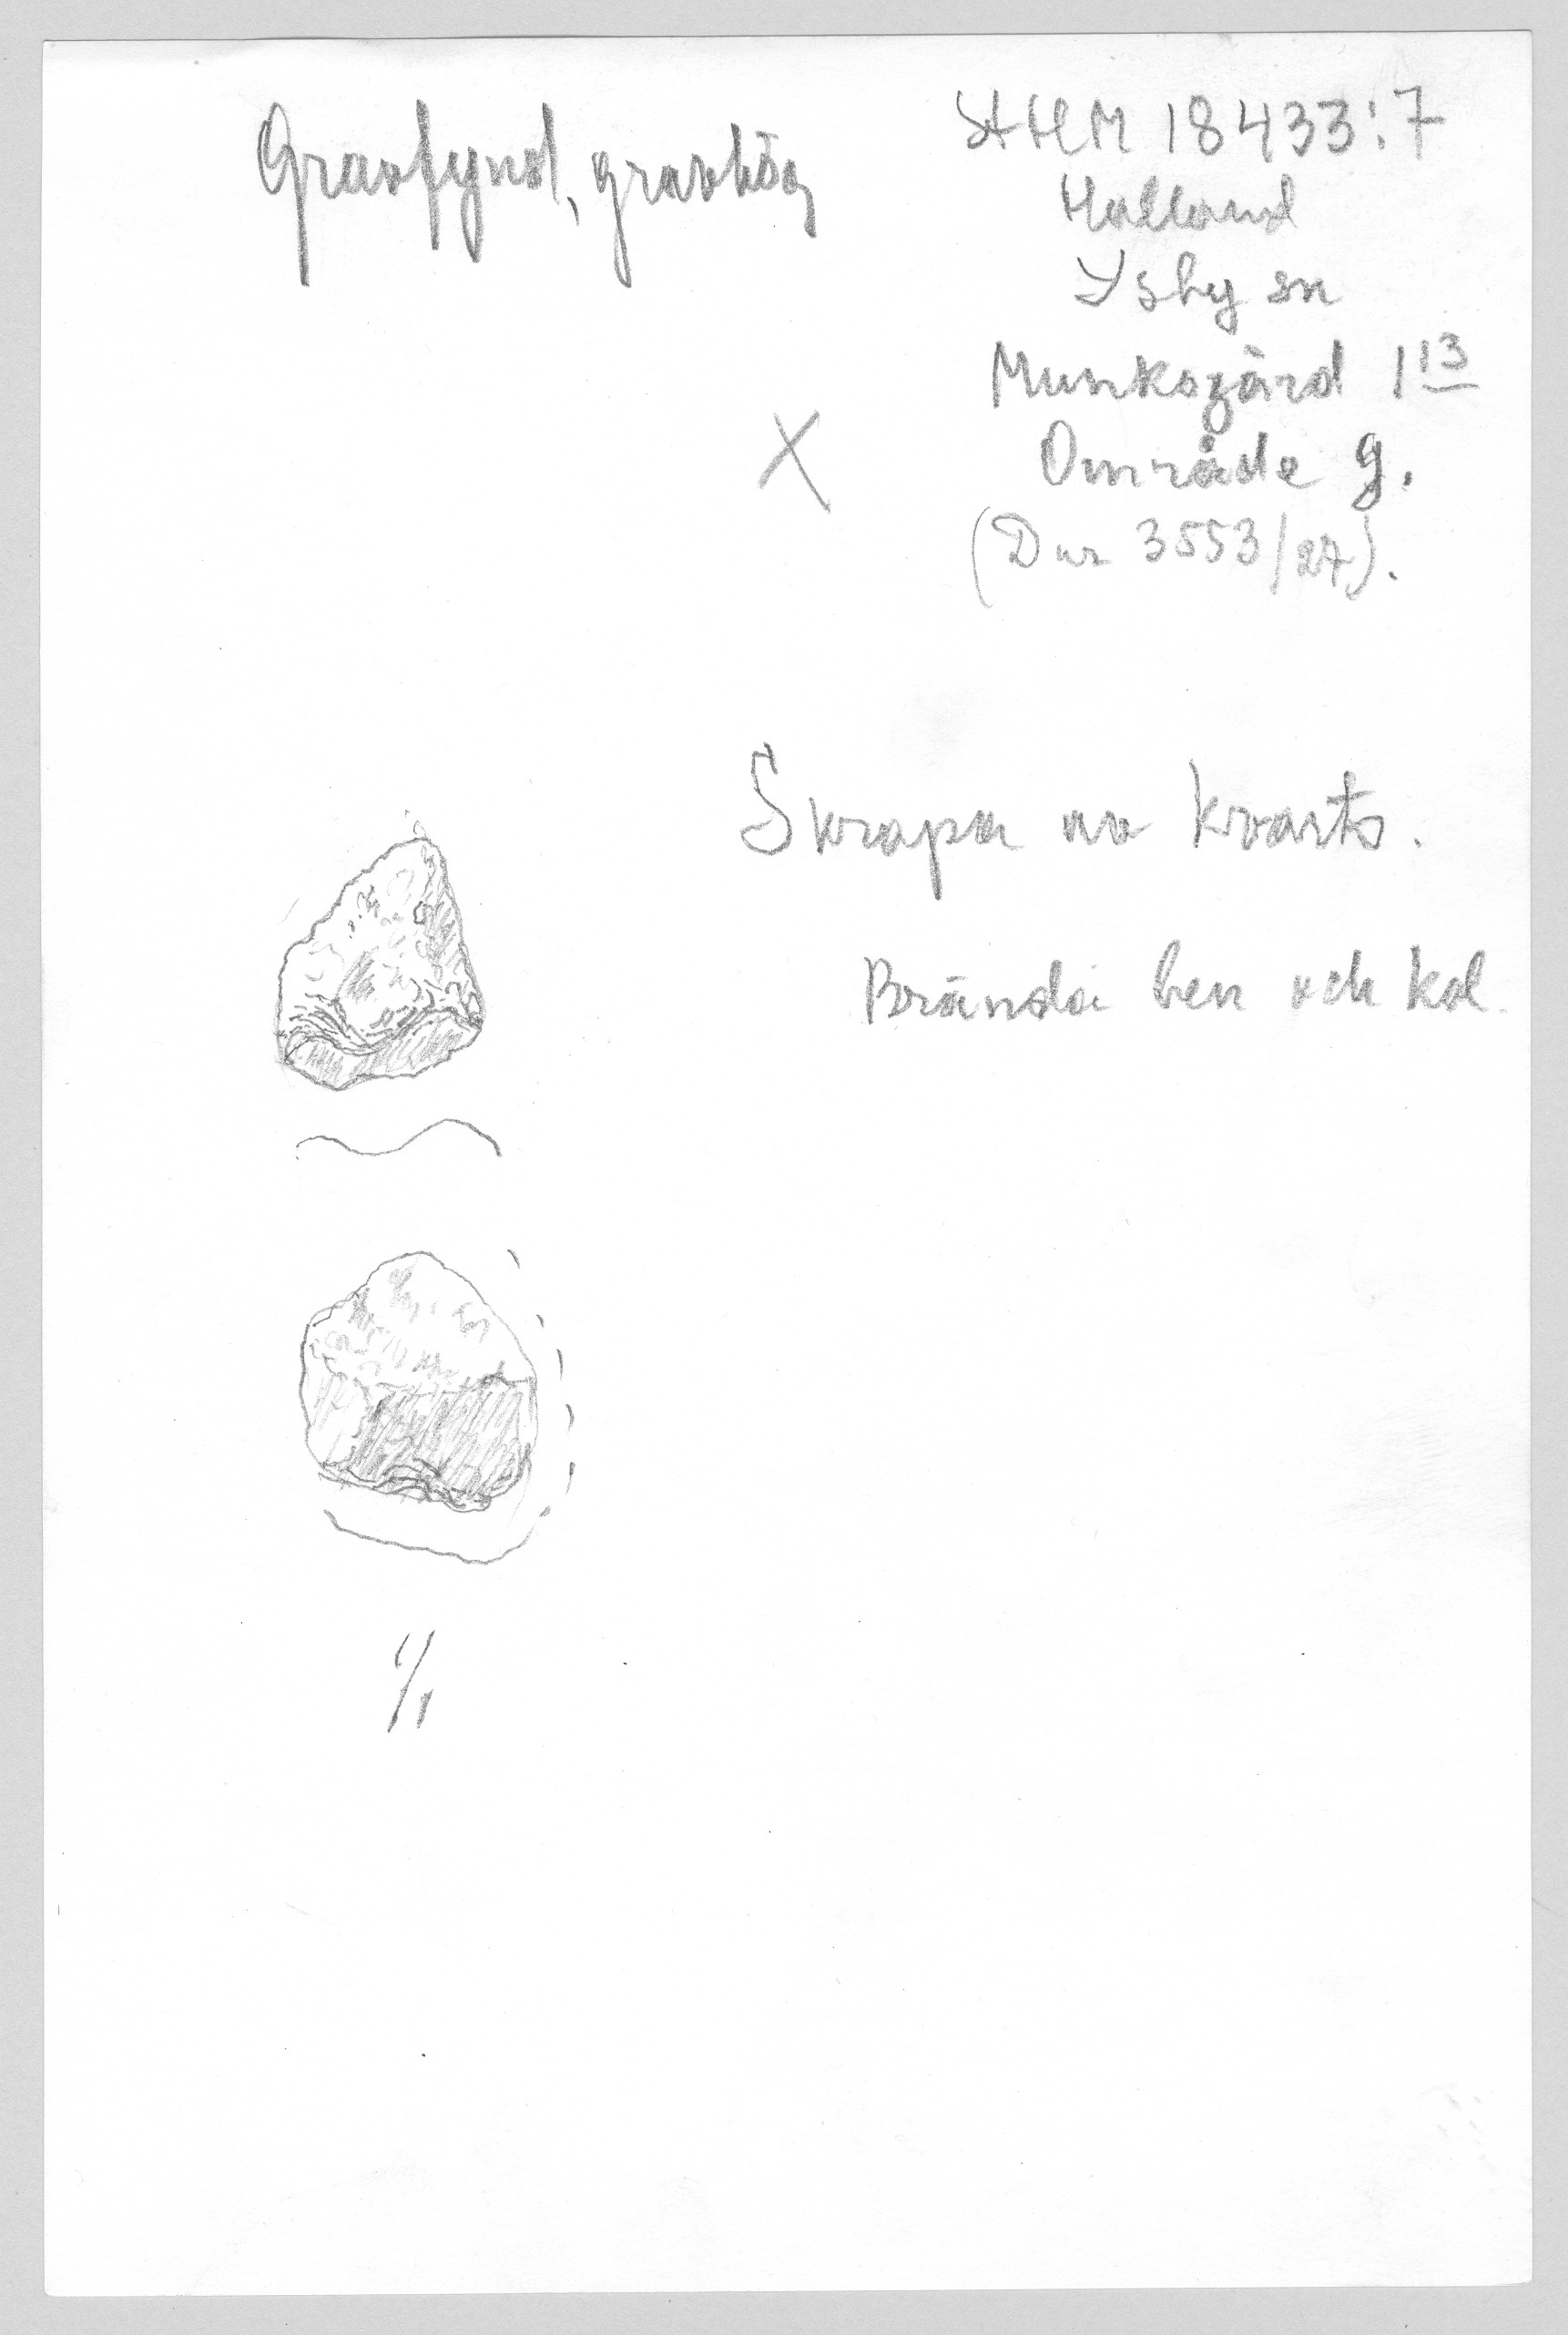 Gravfynd, gravhög
StHM 18433:7
Halland
Ysby sn
Munkagård 1¹³
Område g.
X
(Dnr 3553/27).
Skrapa av kvarts.
Brända ben och kol.
1/1